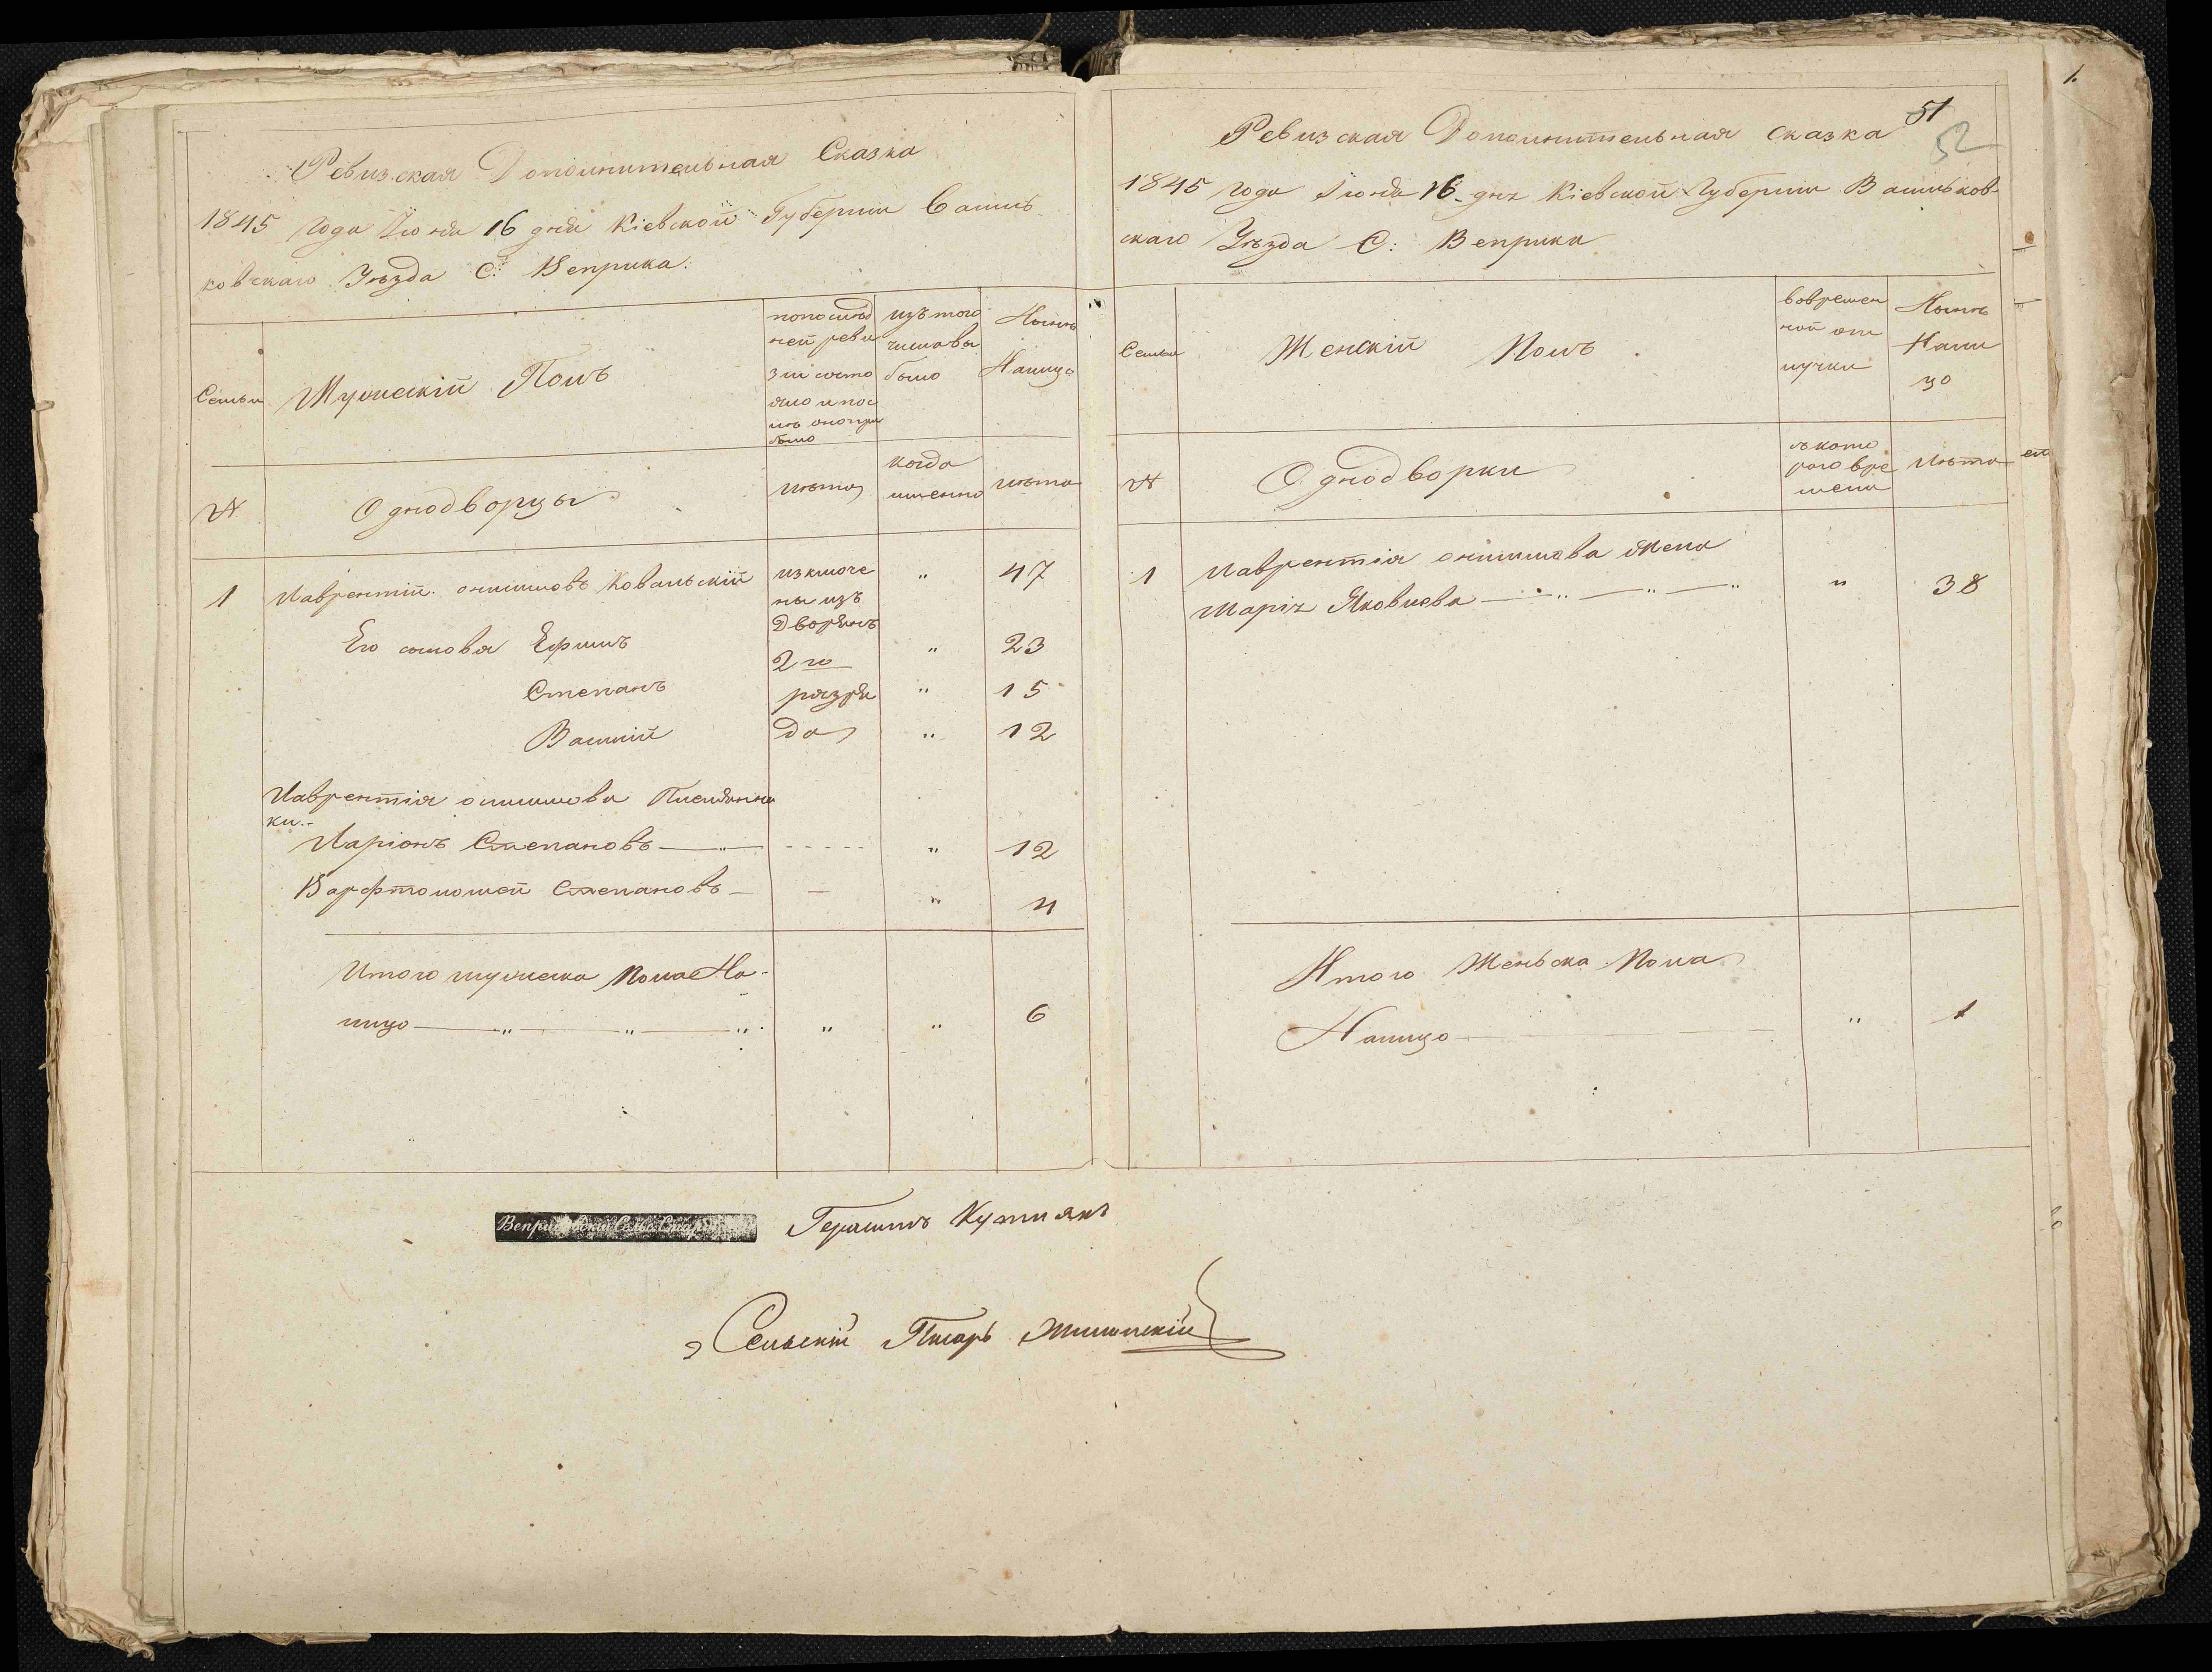 Ревизская Дополнительная Сказка
1845 года Июня 16 дня Кіевской Губерніи Василь
ковскаго Уѣзда С: Веприка.
Семьи
Мужескій Полъ
попослѣд
ней реви
зіи состо
яло и пос
лѣ оно при
было
изъ того
числа вы
было
Нынѣ
Налицо
№
Однодворцы
лѣта
когда
именно
лѣта
1
Лаврентій Онишковъ Ковальскій
изключе
ны изъ
Дворянъ
2го
разря
да
"
47
Его сыновья Ефимъ
"
23
Степанъ
"
15
Василій
"
12
Лаврентія Племянни
ки.-
Ларіонъ Степановъ — " —
- - - - -
"
12
Варфтоломей Степановъ —
—
"
4
Итого мужеска Пола На-
лицо — " — " — "
"
"
6
51
52
1.
Ревизская Дополнительная Сказка
1845 года Іюня 16 дня Кіевской Губерніи Васильков-
скаго Уѣзда С: Веприка
Семьи
Женскій Полъ
вовремен
ной от
лучки
Нынѣ
Нали
цо
№
Однодворки
съ кото
раго вре
мени
Лѣта
1
Лаврентія жена
Марія Яковлева — " — " — "
"
38
Итого Женьска Пола
Налицо —
"
1
Герасимъ
Сельскій Писарь